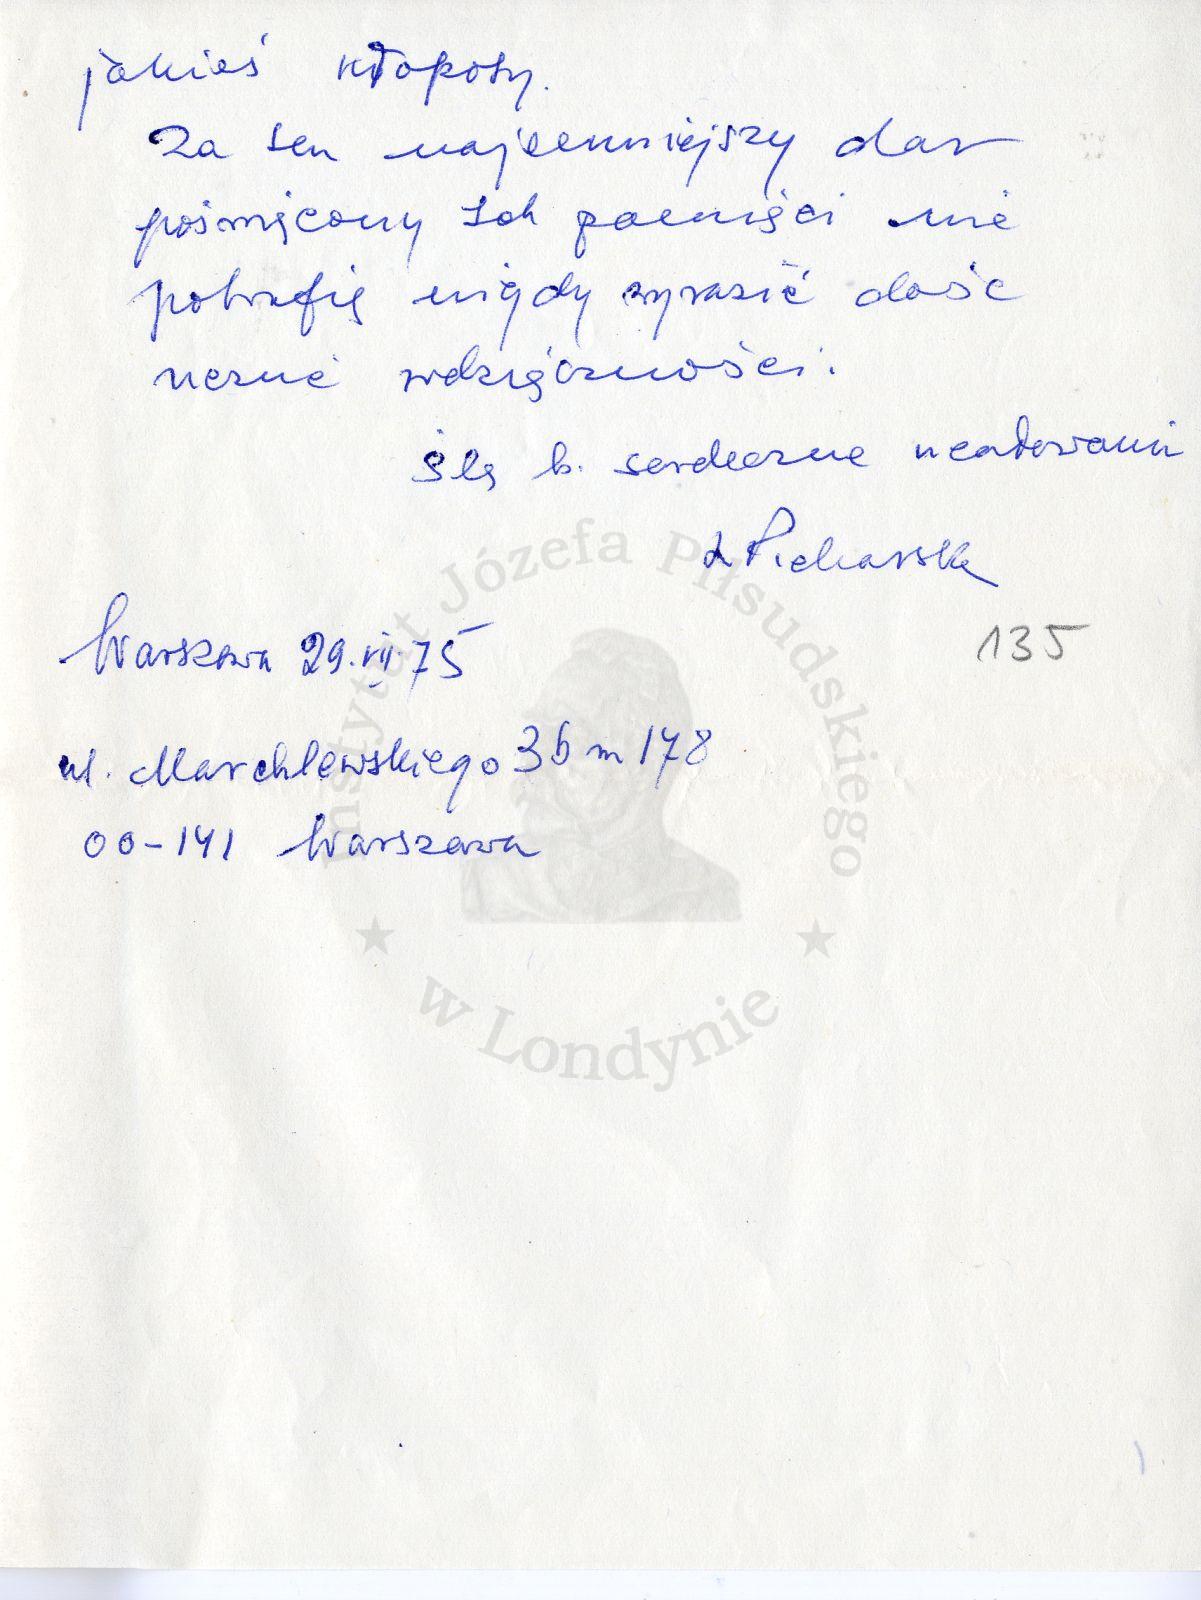 jakieś kłopoty.
Za ten najcenniejszy dar
poświęcony Ich pamięci nie
potrafię nigdy wyrazić dość
uczuć wdzięczności.
Ślę b. serdeczne ucałowania
L Piekarska
Warszawa 29.VII.75
135
ul. Marchlewskiego 36 m 178
00-141 Warszawa
Instytut Józefa Piłsudskiego
w Londynie